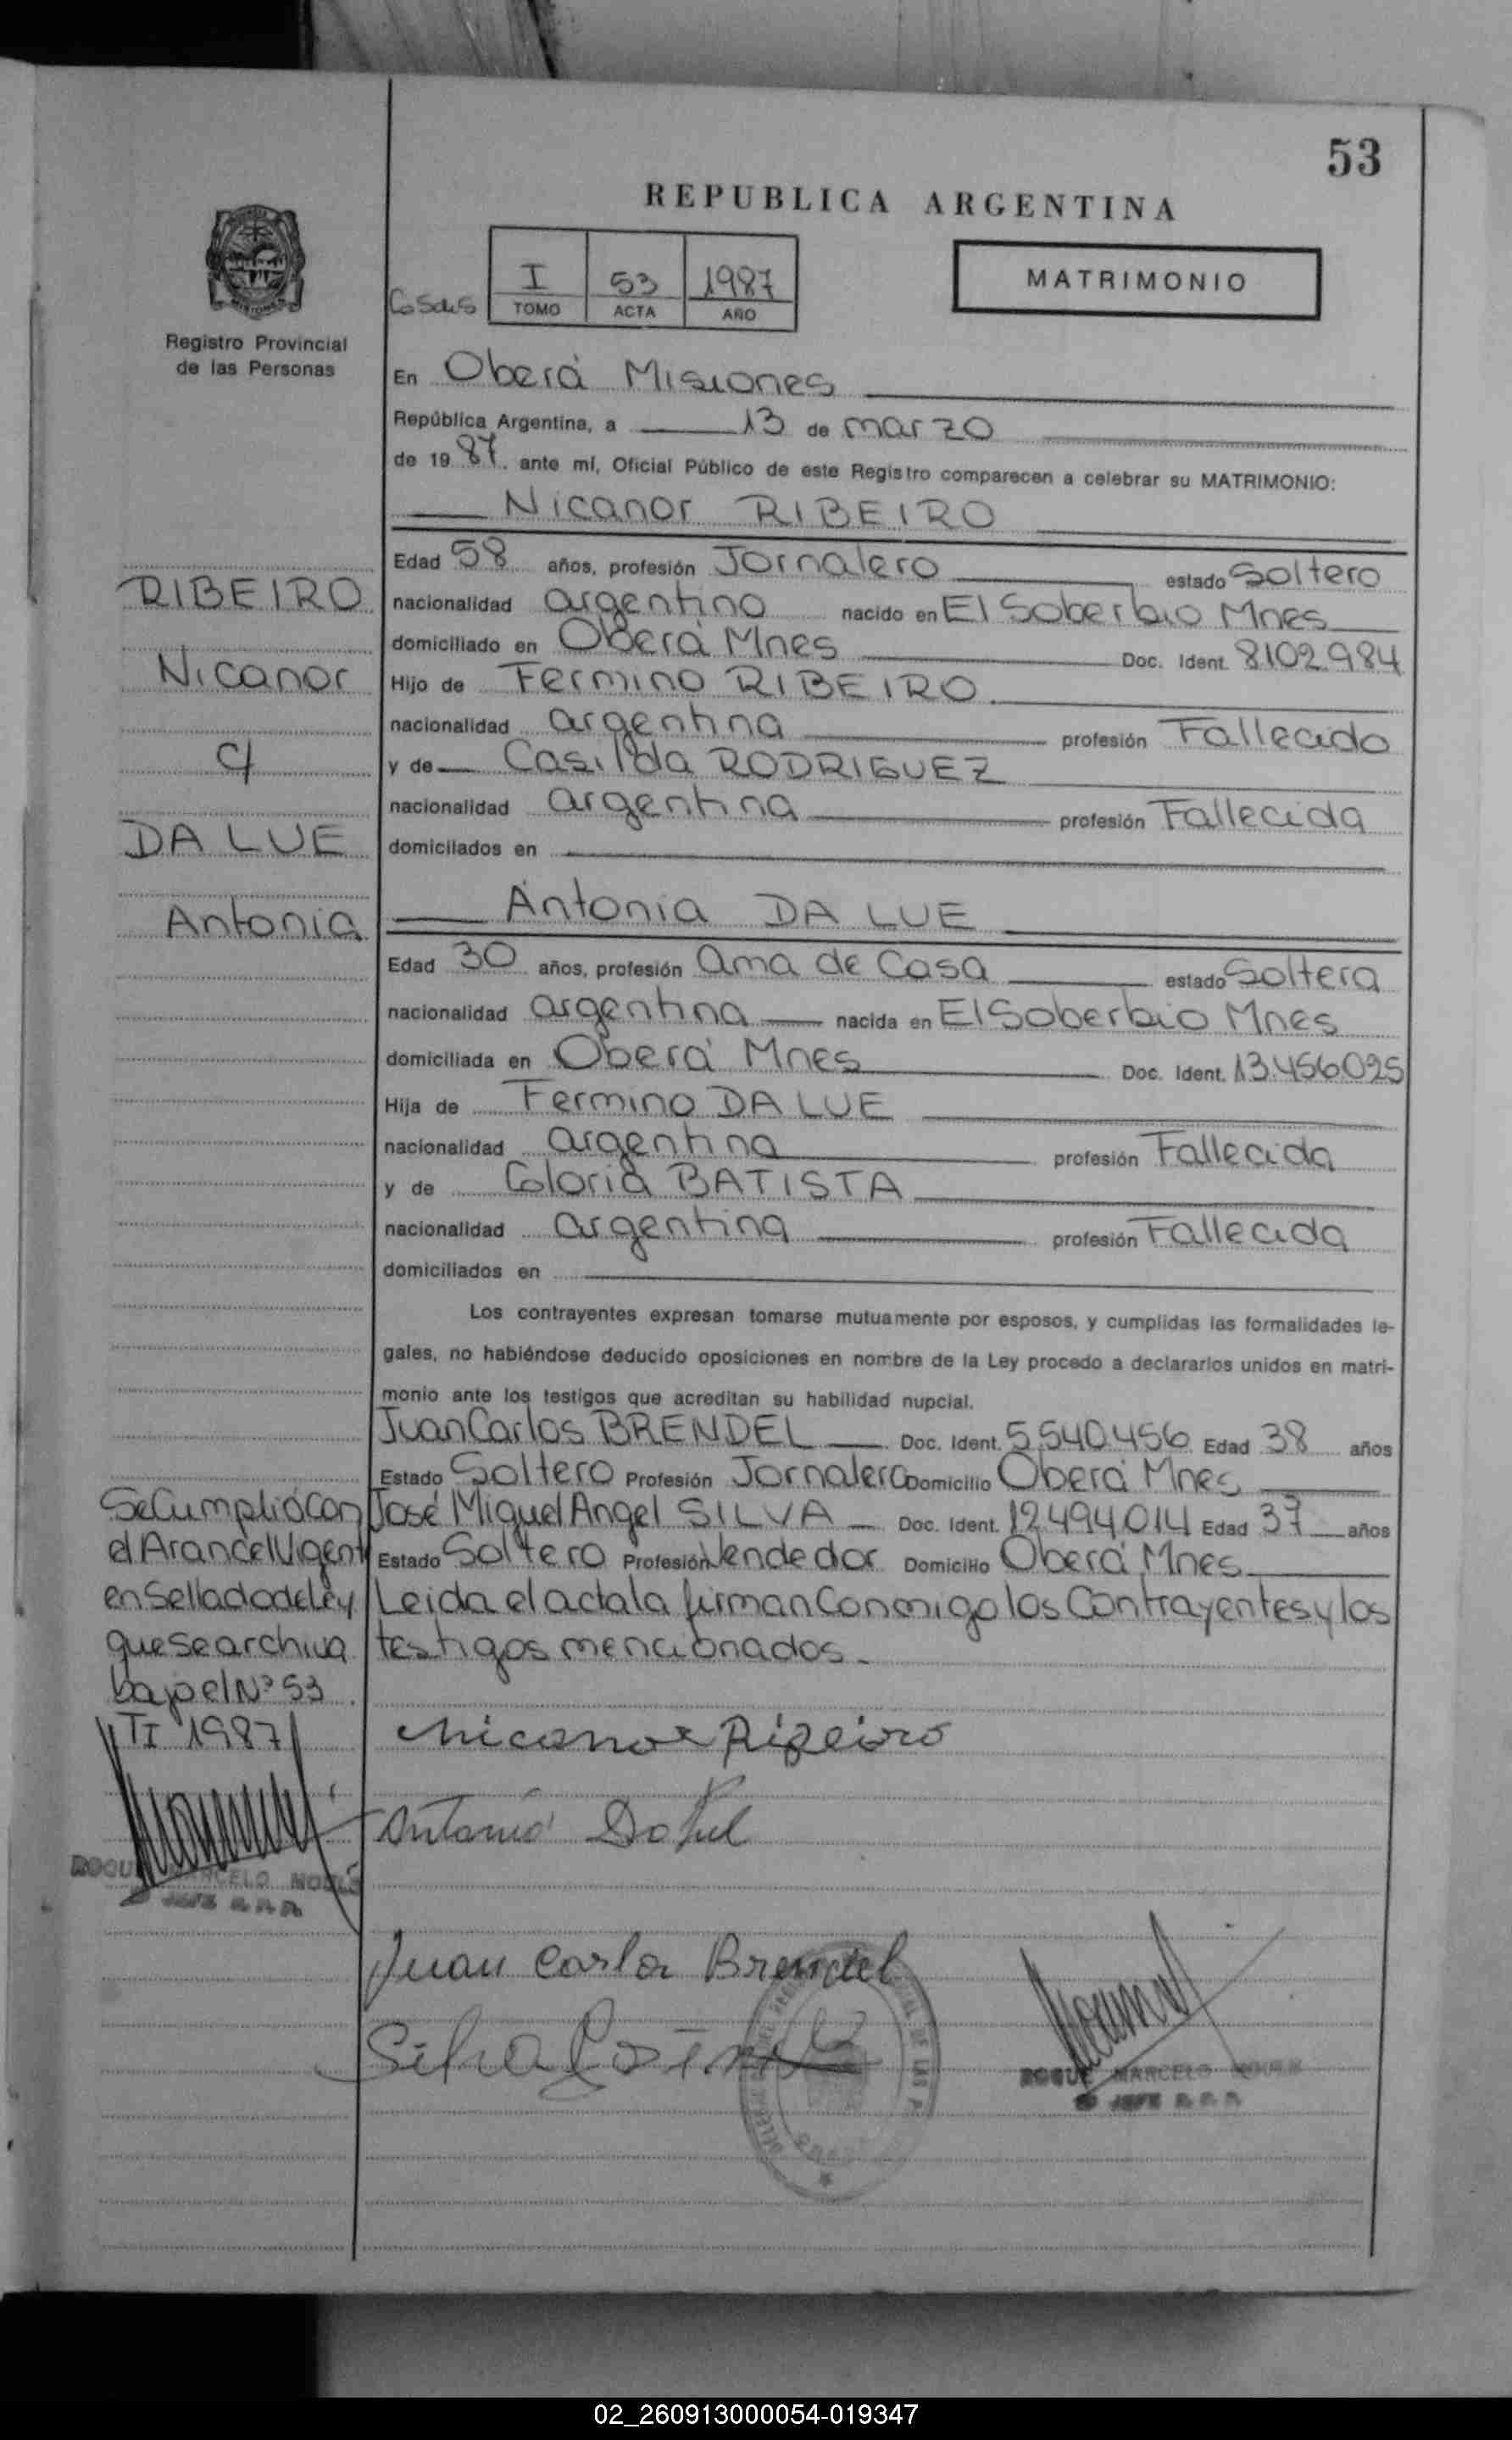 53
REPUBLICA ARGENTINA
I 53 1987
TOMO ACTA AÑO
MATRIMONIO
Registro Provincial
de las Personas
En Oberá Misiones
República Argentina, a 13 de marzo
de 19 87. ante mí, Oficial Público de este Registro comparecen a celebrar su MATRIMONIO:
Nicanor RIBEIRO
Edad 58 años, profesión Jornalero estado Soltero
nacionalidad argentino nacido en El Soberbio Mnes
domiciliado en Oberá Mnes Doc. Ident. 8102984
Hijo de Fermino RIBEIRO
nacionalidad argentina profesión Fallecido
y de Casilda RODRIGUEZ
nacionalidad argentina profesión Fallecida
domiciliados en
Antonia DA LUE
Edad 30 años, profesión Ama de Casa estado Soltera
nacionalidad argentina nacida en El Soberbio Mnes
domiciliada en Oberá Mnes Doc. Ident. 13.456.025
Hija de Fermino DA LUE
nacionalidad argentina profesión Fallecida
y de Gloria BATISTA
nacionalidad argentina profesión Fallecida
domiciliados en
Los contrayentes expresan tomarse mutuamente por esposos, y cumplidas las formalidades le-
gales, no habiéndose deducido oposiciones en nombre de la Ley procedo a declararlos unidos en matri-
monio ante los testigos que acreditan su habilidad nupcial.
Juan Carlos BRENDEL Doc. Ident. 5.540.456 Edad 38 años
Estado Soltero Profesión Jornalero Domicilio Oberá Mnes
José Miguel Angel SILVA Doc. Ident. 12.494.014 Edad 37 años
Estado Soltero Profesión Vendedor Domicilio Oberá Mnes
Leida el acta la firman Conmigo los Contrayentes y los
testigos mencionados.
RIBEIRO
Nicanor
c/
DA LUE
Antonia
Se Cumplió con
el Arancel Vigent
en Sellado de Ley
que se archiva
bajo el Nº 53
TI 1987
Nicanor Ribeiro
Antonia
ROQUE MARCELO
JEFE R.P.P.
Juan Carlos Brendel
Silva
ROQUE MARCELO
JEFE R.P.P.
02_260913000054-019347